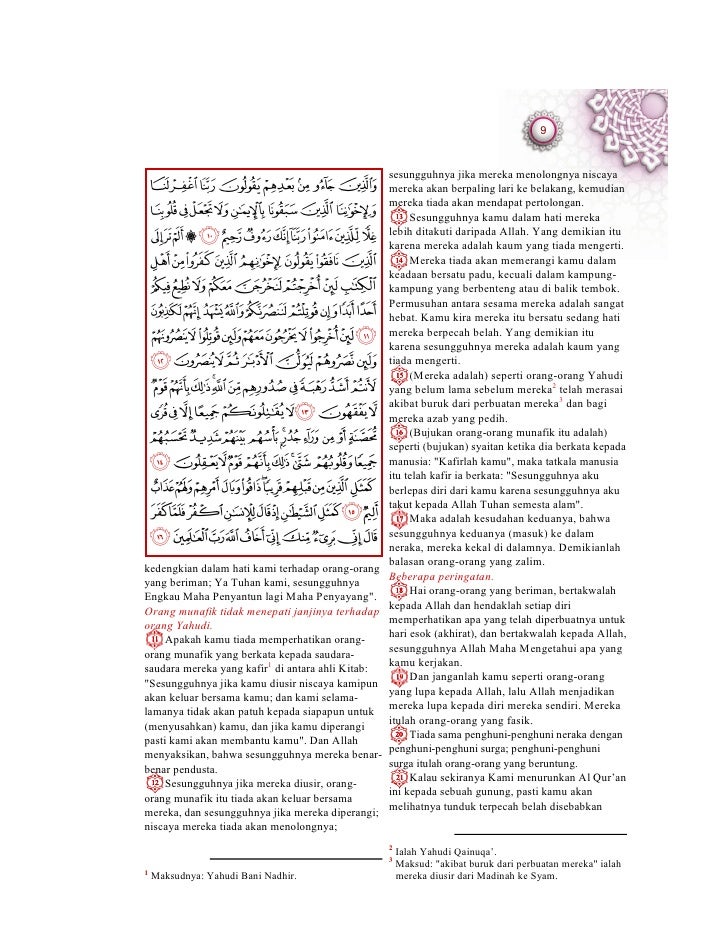 9
وَٱلَّذِينَ جَآءُو مِنۢ بَعْدِهِمْ يَقُولُونَ رَبَّنَا ٱغْفِرْ لَنَا
وَلِإِخْوَٰنِنَا ٱلَّذِينَ سَبَقُونَا بِٱلْإِيمَٰنِ وَلَا تَجْعَلْ فِى قُلُوبِنَا
غِلًّا لِّلَّذِينَ ءَامَنُوا۟ رَبَّنَآ إِنَّكَ رَءُوفٌ رَّحِيمٌ ١٠ ۞ أَلَمْ تَرَ إِلَى
ٱلَّذِينَ نَافَقُوا۟ يَقُولُونَ لِإِخْوَٰنِهِمُ ٱلَّذِينَ كَفَرُوا۟ مِنْ أَهْلِ
ٱلْكِتَٰبِ لَئِنْ أُخْرِجْتُمْ لَنَخْرُجَنَّ مَعَكُمْ وَلَا نُطِيعُ فِيكُمْ
أَحَدًا أَبَدًا وَإِن قُوتِلْتُمْ لَنَنصُرَنَّكُمْ وَٱللَّهُ يَشْهَدُ إِنَّهُمْ لَكَٰذِبُونَ
١١ لَئِنْ أُخْرِجُوا۟ لَا يَخْرُجُونَ مَعَهُمْ وَلَئِن قُوتِلُوا۟ لَا يَنصُرُونَهُمْ
وَلَئِن نَّصَرُوهُمْ لَيُوَلُّنَّ ٱلْأَدْبَٰرَ ثُمَّ لَا يُنصَرُونَ ١٢
لَأَنتُمْ أَشَدُّ رَهْبَةً فِى صُدُورِهِم مِّنَ ٱللَّهِ ۚ ذَٰلِكَ بِأَنَّهُمْ قَوْمٌ
لَّا يَفْقَهُونَ ١٣ لَا يُقَٰتِلُونَكُمْ جَمِيعًا إِلَّا فِى قُرًى
مُّحَصَّنَةٍ أَوْ مِن وَرَآءِ جُدُرٍۭ ۚ بَأْسُهُم بَيْنَهُمْ شَدِيدٌ ۚ تَحْسَبُهُمْ
جَمِيعًا وَقُلُوبُهُمْ شَتَّىٰ ۚ ذَٰلِكَ بِأَنَّهُمْ قَوْمٌ لَّا يَعْقِلُونَ ١٤
كَمَثَلِ ٱلَّذِينَ مِن قَبْلِهِمْ قَرِيبًا ۖ ذَاقُوا۟ وَبَالَ أَمْرِهِمْ وَلَهُمْ عَذَابٌ
أَلِيمٌ ١٥ كَمَثَلِ ٱلشَّيْطَٰنِ إِذْ قَالَ لِلْإِنسَٰنِ ٱكْفُرْ فَلَمَّا كَفَرَ
قَالَ إِنِّى بَرِىٓءٌ مِّنكَ إِنِّىٓ أَخَافُ ٱللَّهَ رَبَّ ٱلْعَٰلَمِينَ ١٦
kedengkian dalam hati kami terhadap orang-orang
yang beriman; Ya Tuhan kami, sesungguhnya
Engkau Maha Penyantun lagi Maha Penyayang".
Orang munafik tidak menepati janjinya terhadap
orang Yahudi.
11 Apakah kamu tiada memperhatikan orang-
orang munafik yang berkata kepada saudara-
saudara mereka yang kafir1 di antara ahli Kitab:
"Sesungguhnya jika kamu diusir niscaya kamipun
akan keluar bersama kamu; dan kami selama-
lamanya tidak akan patuh kepada siapapun untuk
(menyusahkan) kamu, dan jika kamu diperangi
pasti kami akan membantu kamu". Dan Allah
menyaksikan, bahwa sesungguhnya mereka benar-
benar pendusta.
12 Sesungguhnya jika mereka diusir, orang-
orang munafik itu tiada akan keluar bersama
mereka, dan sesungguhnya jika mereka diperangi;
niscaya mereka tiada akan menolongnya;
1 Maksudnya: Yahudi Bani Nadhir.
sesungguhnya jika mereka menolongnya niscaya
mereka akan berpaling lari ke belakang, kemudian
mereka tiada akan mendapat pertolongan.
13 Sesungguhnya kamu dalam hati mereka
lebih ditakuti daripada Allah. Yang demikian itu
karena mereka adalah kaum yang tiada mengerti.
14 Mereka tiada akan memerangi kamu dalam
keadaan bersatu padu, kecuali dalam kampung-
kampung yang berbenteng atau di balik tembok.
Permusuhan antara sesama mereka adalah sangat
hebat. Kamu kira mereka itu bersatu sedang hati
mereka berpecah belah. Yang demikian itu
karena sesungguhnya mereka adalah kaum yang
tiada mengerti.
15 (Mereka adalah) seperti orang-orang Yahudi
yang belum lama sebelum mereka2 telah merasai
akibat buruk dari perbuatan mereka3 dan bagi
mereka azab yang pedih.
16 (Bujukan orang-orang munafik itu adalah)
seperti (bujukan) syaitan ketika dia berkata kepada
manusia: "Kafirlah kamu", maka tatkala manusia
itu telah kafir ia berkata: "Sesungguhnya aku
berlepas diri dari kamu karena sesungguhnya aku
takut kepada Allah Tuhan semesta alam".
17 Maka adalah kesudahan keduanya, bahwa
sesungguhnya keduanya (masuk) ke dalam
neraka, mereka kekal di dalamnya. Demikianlah
balasan orang-orang yang zalim.
Beberapa peringatan.
18 Hai orang-orang yang beriman, bertakwalah
kepada Allah dan hendaklah setiap diri
memperhatikan apa yang telah diperbuatnya untuk
hari esok (akhirat), dan bertakwalah kepada Allah,
sesungguhnya Allah Maha Mengetahui apa yang
kamu kerjakan.
19 Dan janganlah kamu seperti orang-orang
yang lupa kepada Allah, lalu Allah menjadikan
mereka lupa kepada diri mereka sendiri. Mereka
itulah orang-orang yang fasik.
20 Tiada sama penghuni-penghuni neraka dengan
penghuni-penghuni surga; penghuni-penghuni
surga itulah orang-orang yang beruntung.
21 Kalau sekiranya Kami menurunkan Al Qur’an
ini kepada sebuah gunung, pasti kamu akan
melihatnya tunduk terpecah belah disebabkan
2 Ialah Yahudi Qainuqa’.
3 Maksud: "akibat buruk dari perbuatan mereka" ialah
mereka diusir dari Madinah ke Syam.